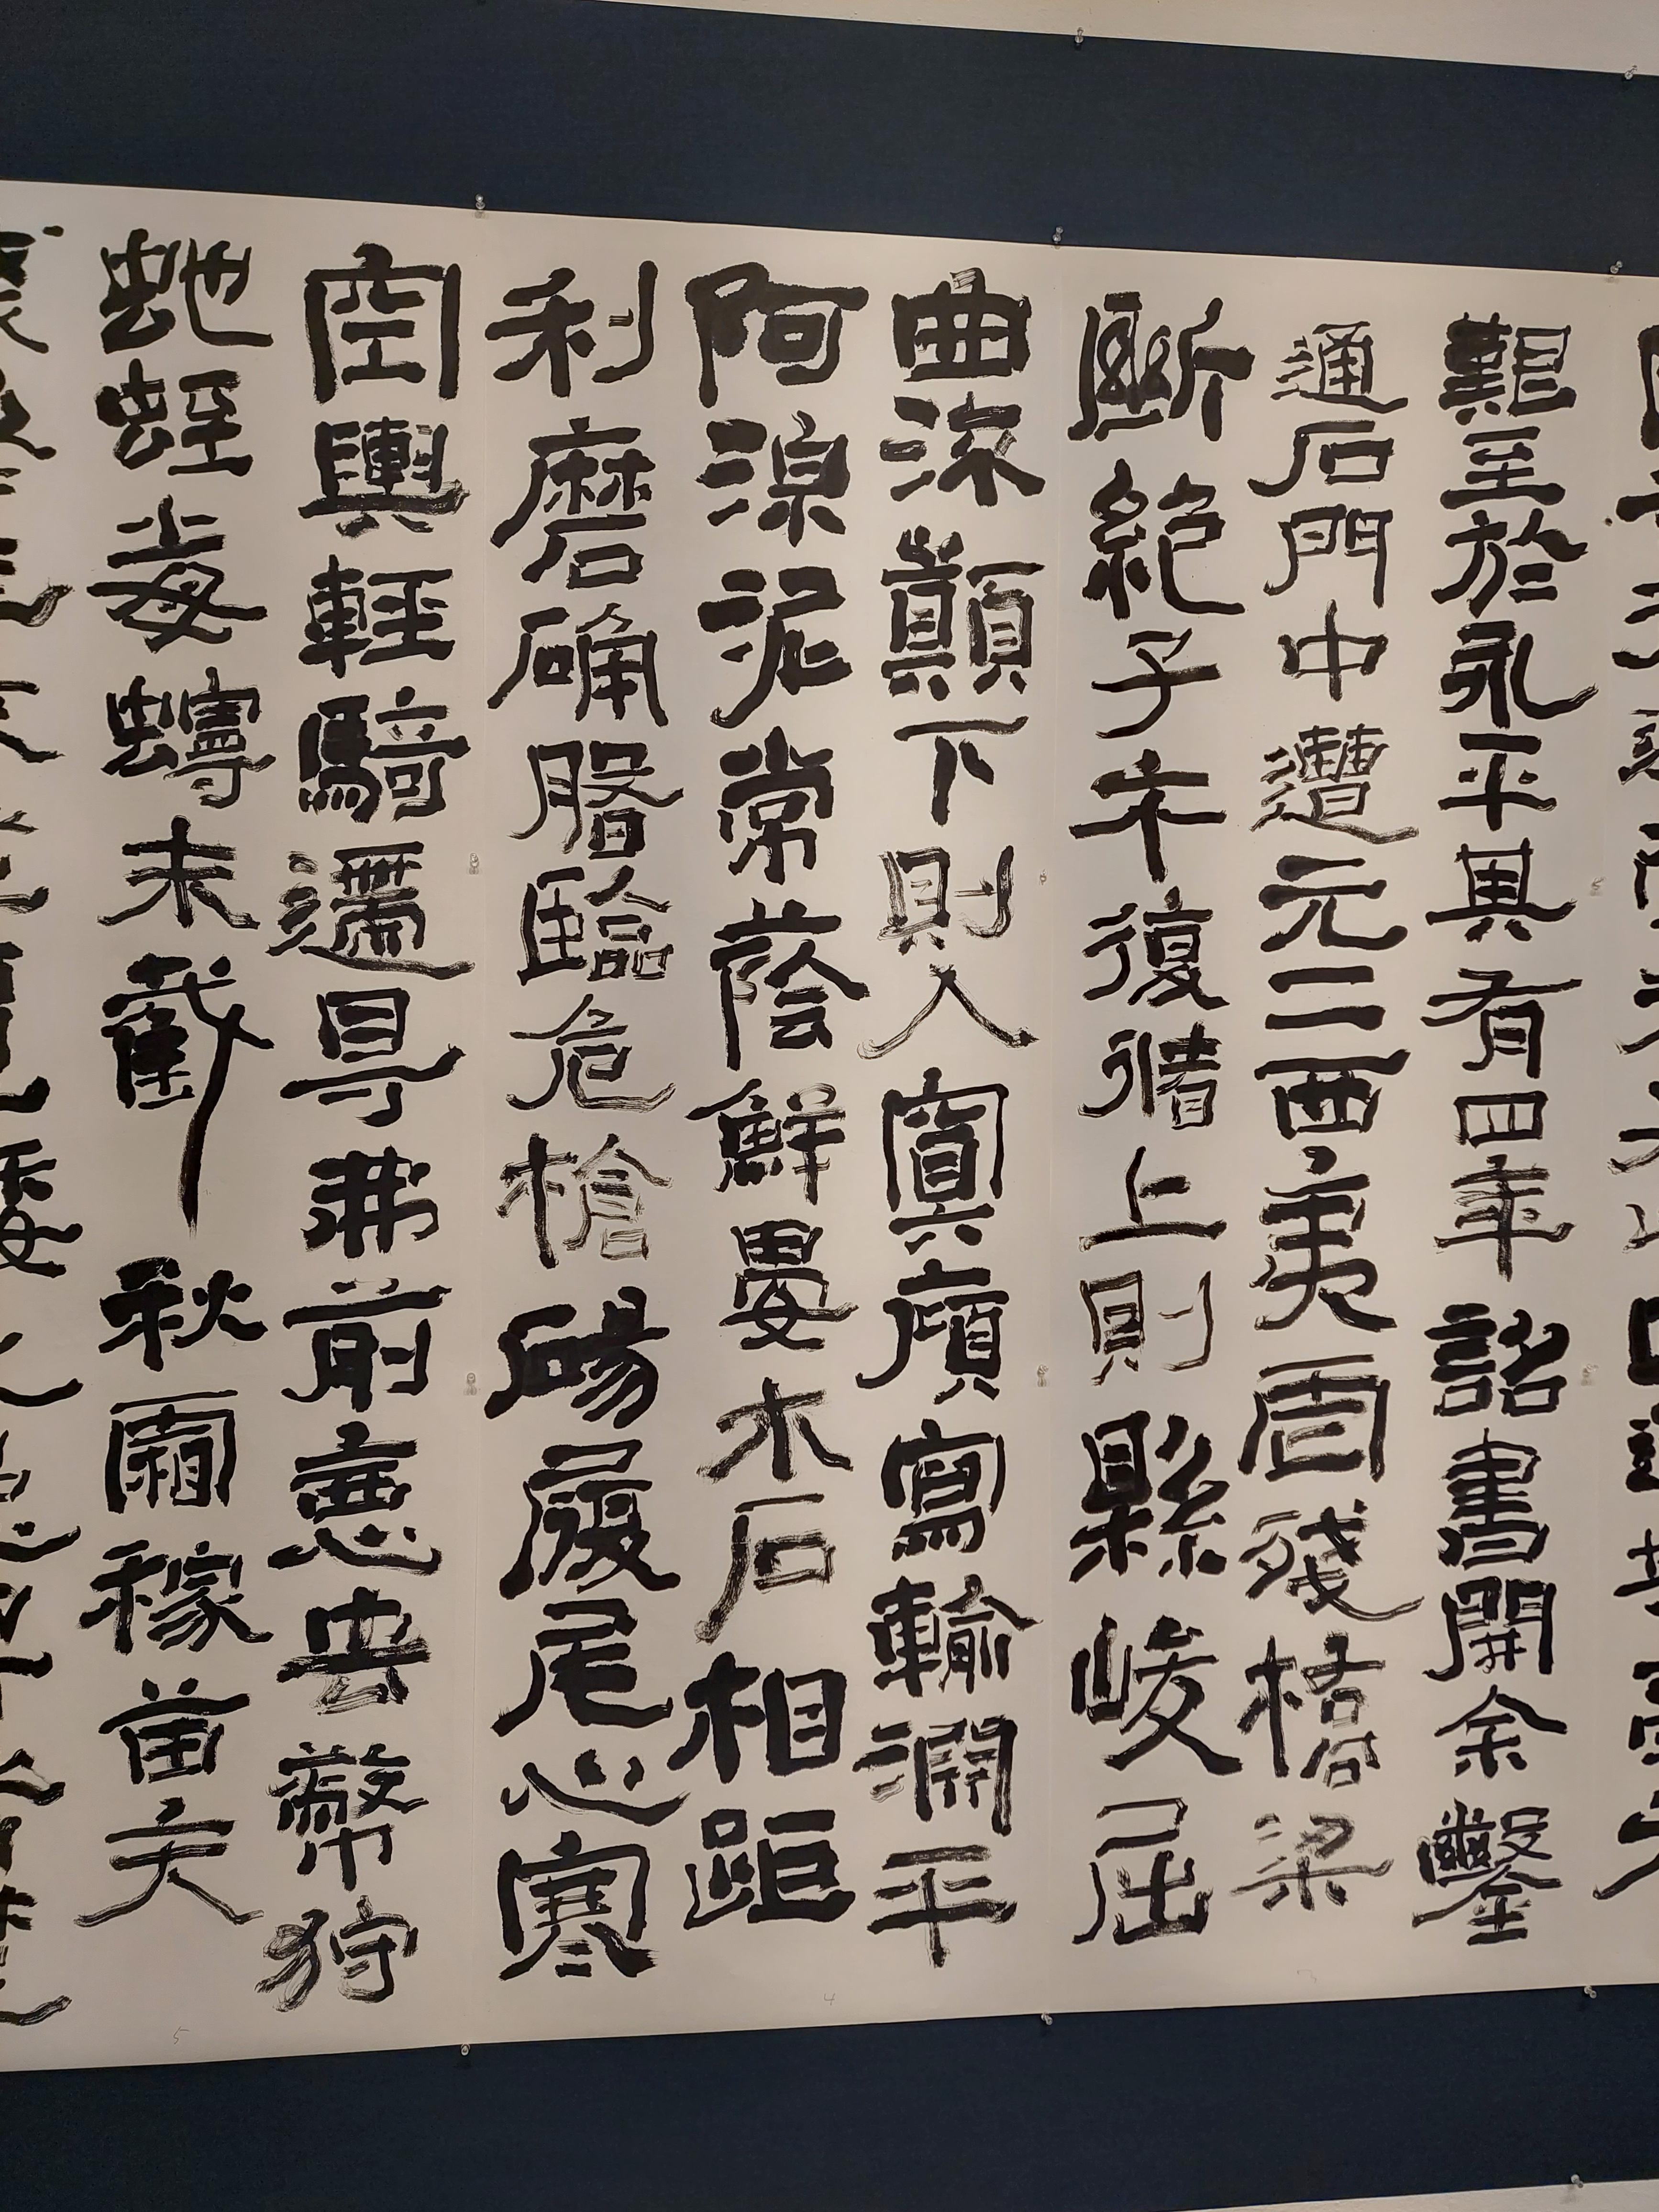 艱至於永平其有四年詔書開余鑿
通石門中遭元二西夷虐殘橋梁
斷絕子午復循上則縣峻屈
曲流顛下則入冥傾寫輸淵平
阿湶泥常蔭鮮晏木石相距
利磨确磐臨危槍碭履尾心寒
空輿輕騎遰㝵弗前惡虫弊狩
虵蛭毒蟃未截秋霜稼苗夭